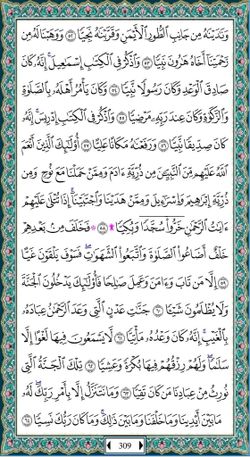 وَنَٰدَيْنَٰهُ مِن جَانِبِ ٱلطُّورِ ٱلْأَيْمَنِ وَقَرَّبْنَٰهُ نَجِيًّا ٥٢ وَوَهَبْنَا لَهُۥ مِن
رَّحْمَتِنَآ أَخَاهُ هَٰرُونَ نَبِيًّا ٥٣ وَٱذْكُرْ فِى ٱلْكِتَٰبِ إِسْمَٰعِيلَ ۚ إِنَّهُۥ كَانَ
صَادِقَ ٱلْوَعْدِ وَكَانَ رَسُولًا نَّبِيًّا ٥٤ وَكَانَ يَأْمُرُ أَهْلَهُۥ بِٱلصَّلَوٰةِ
وَٱلزَّكَوٰةِ وَكَانَ عِندَ رَبِّهِۦ مَرْضِيًّا ٥٥ وَٱذْكُرْ فِى ٱلْكِتَٰبِ إِدْرِيسَ ۚ إِنَّهُۥ
كَانَ صِدِّيقًا نَّبِيًّا ٥٦ وَرَفَعْنَٰهُ مَكَانًا عَلِيًّا ٥٧ أُو۟لَٰٓئِكَ ٱلَّذِينَ أَنْعَمَ
ٱللَّهُ عَلَيْهِم مِّنَ ٱلنَّبِيِّۦنَ مِن ذُرِّيَّةِ ءَادَمَ وَمِمَّنْ حَمَلْنَا مَعَ نُوحٍ وَمِن
ذُرِّيَّةِ إِبْرَٰهِيمَ وَإِسْرَٰٓءِيلَ وَمِمَّنْ هَدَيْنَا وَٱجْتَبَيْنَآ ۚ إِذَا تُتْلَىٰ عَلَيْهِمْ
ءَايَٰتُ ٱلرَّحْمَٰنِ خَرُّوا۟ سُجَّدًا وَبُكِيًّا ۩ ٥٨ فَخَلَفَ مِنۢ بَعْدِهِمْ
خَلْفٌ أَضَاعُوا۟ ٱلصَّلَوٰةَ وَٱتَّبَعُوا۟ ٱلشَّهَوَٰتِ ۖ فَسَوْفَ يَلْقَوْنَ غَيًّا
٥٩ إِلَّا مَن تَابَ وَءَامَنَ وَعَمِلَ صَٰلِحًا فَأُو۟لَٰٓئِكَ يَدْخُلُونَ ٱلْجَنَّةَ
وَلَا يُظْلَمُونَ شَيْـًٔا ٦٠ جَنَّٰتِ عَدْنٍ ٱلَّتِى وَعَدَ ٱلرَّحْمَٰنُ عِبَادَهُۥ
بِٱلْغَيْبِ ۚ إِنَّهُۥ كَانَ وَعْدُهُۥ مَأْتِيًّا ٦١ لَّا يَسْمَعُونَ فِيهَا لَغْوًا إِلَّا
سَلَٰمًا ۖ وَلَهُمْ رِزْقُهُمْ فِيهَا بُكْرَةً وَعَشِيًّا ٦٢ تِلْكَ ٱلْجَنَّةُ ٱلَّتِى
نُورِثُ مِنْ عِبَادِنَا مَن كَانَ تَقِيًّا ٦٣ وَمَا نَتَنَزَّلُ إِلَّا بِأَمْرِ رَبِّكَ ۖ لَهُۥ
مَا بَيْنَ أَيْدِينَا وَمَا خَلْفَنَا وَمَا بَيْنَ ذَٰلِكَ ۚ وَمَا كَانَ رَبُّكَ نَسِيًّا ٦٤
309